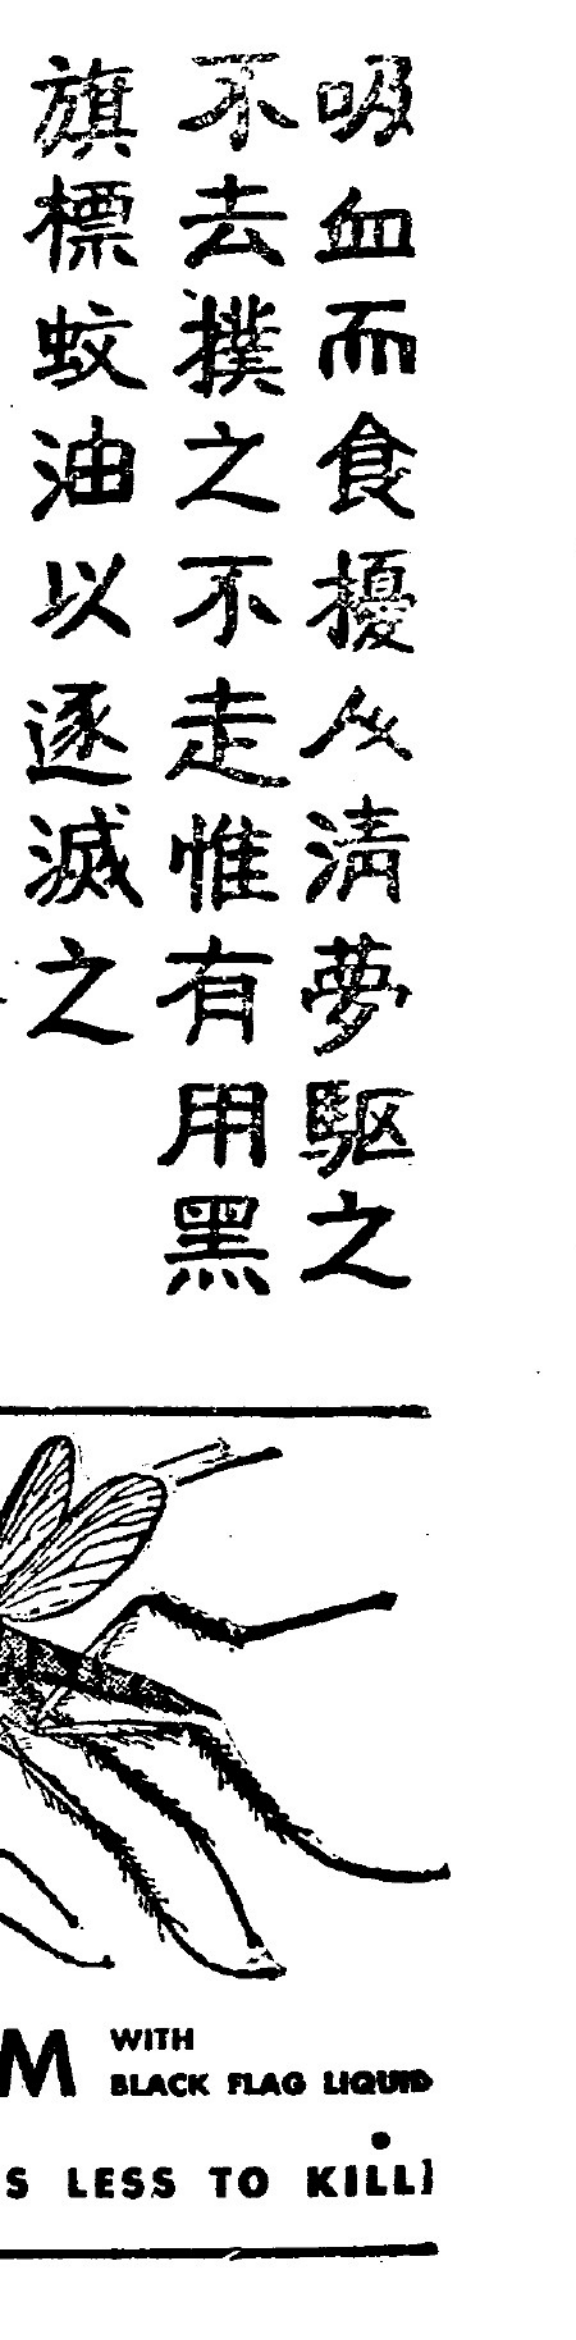 吸血而食擾人清夢驅之
不去撲之不走惟有用黑
旗標蚊油以逐滅之
M WITH
BLACK FLAG LIQUID
S LESS TO KILL)